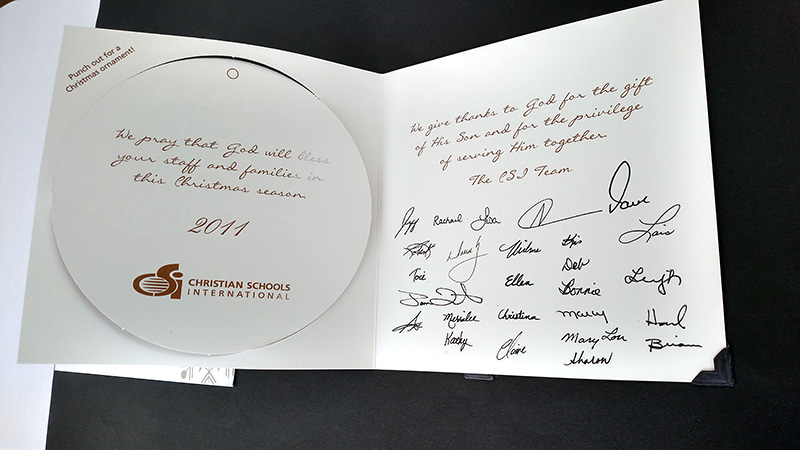 Punch out for a
Christmas ornament!
We pray that God will bless
your staff and families in
this Christmas season.
2011
CSI CHRISTIAN SCHOOLS
INTERNATIONAL
We give thanks to God for the gift
of His Son and for the privilege
of serving Him together.
The CSI Team
Jeff Rachael Lisa Dave
Robert Wilma Kris Lois
Toié Ellen Deb Leigh
Bonnie
Merrilee Christina Mary
Kathy Claire Mary Lou Brian
Sharon